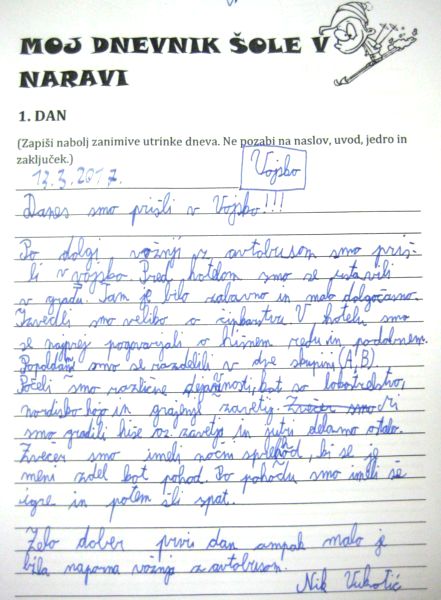 MOJ DNEVNIK ŠOLE V
NARAVI
1. DAN
(Zapiši nabolj zanimive utrinke dneva. Ne pozabi na naslov, uvod, jedro in
zaključek.)
13.3.2017.
Vojsko
Danes smo prišli v Vojsko!!!
Po dolgi vožnji z avtobusom smo priš-
li v vojsko. Pred hotelom smo se ustavili
v gradu. Tam je bilo zabavno in malo dolgočasno.
Izvedeli smo veliko o čipkarstvu. V hotelu smo
se najprej pogovarjali o hišnem redu in podobnem.
Popoldan smo se razdelili v dve skupini (A, B).
Počeli smo različne dejavnosti, kot so lokostrelstvo,
nordijsko hojo in zavetij. Zvečer smo Mi
smo gradili hiše oz. zavetja in jutri delamo ostalo.
Zvecer smo imeli nočni sprehod, ki se je
meni zdel kot pohod. Po pohodu smo imeli še
igre in potem šli spat.
Zelo dober prvi dan ampak malo je
bila naporna vožnja z avtobusom.
Nik Vukotić